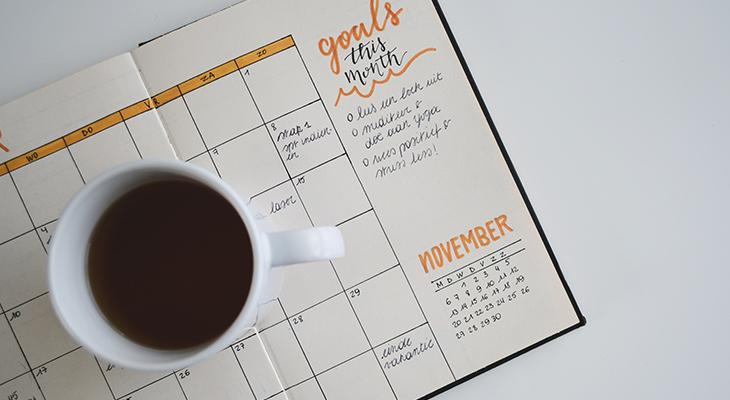 R
WO DO VR ZA ZO
1
4
7
8
stap 1
indien-
en
laser
15
10
17
26
27
28
29
einde
vakantie
goals
this
month
o lees een boek uit
o mediteer &
doe aan yoga
o wees positief &
stress less!
NOVEMBER
M D W D V Z Z
1 2 3 4 5
6 7 8 9 10 11 12
13 14 15 16 17 18 19
20 21 22 23 24 25 26
27 28 29 30